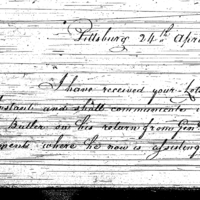 Pittsburg 24th Apri
I have received your Lett
Instant and shall communicate i
Butler on his return from Genl
ments where he now is assisting